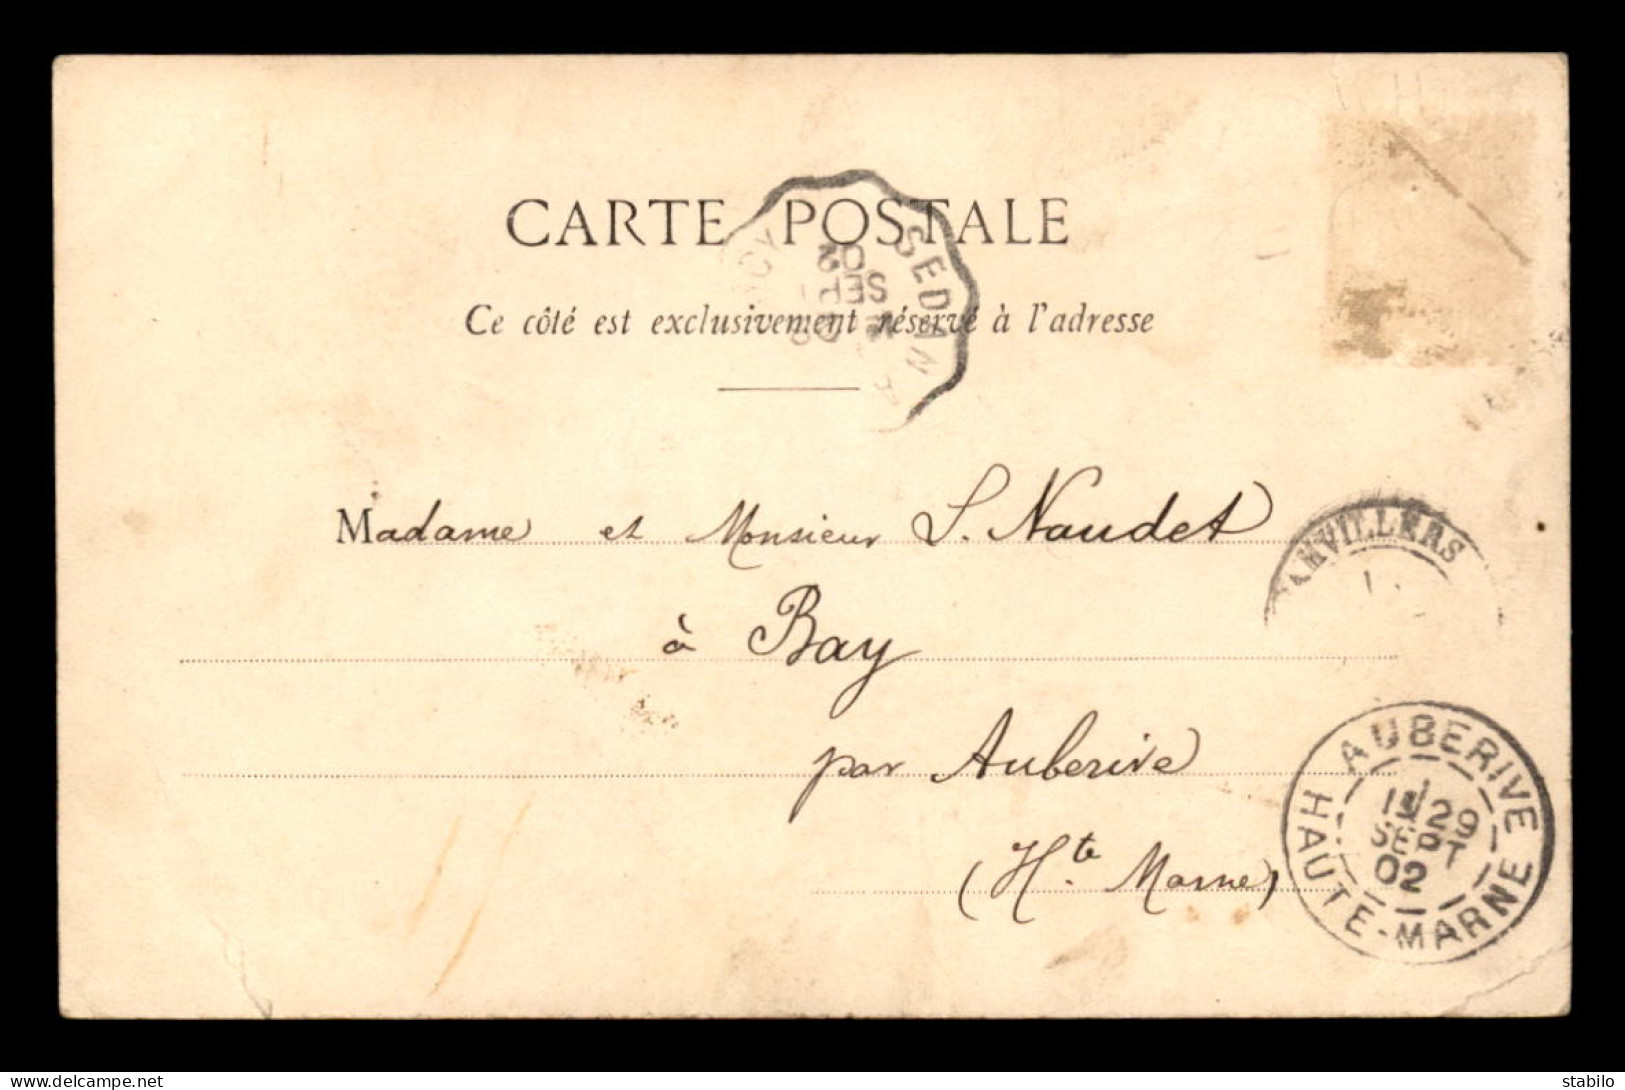 CARTE POSTALE
SEDAN
SEPT
02
Ce côté est exclusivement réservé à l'adresse
Madame et Monsieur S. Naudet
AMVILLERS
à Bay
par Auberive
(Hte. Marne)
AUBERIVE
29
SEPT
02
HAUTE-MARNE
delcampe.net
stabilo